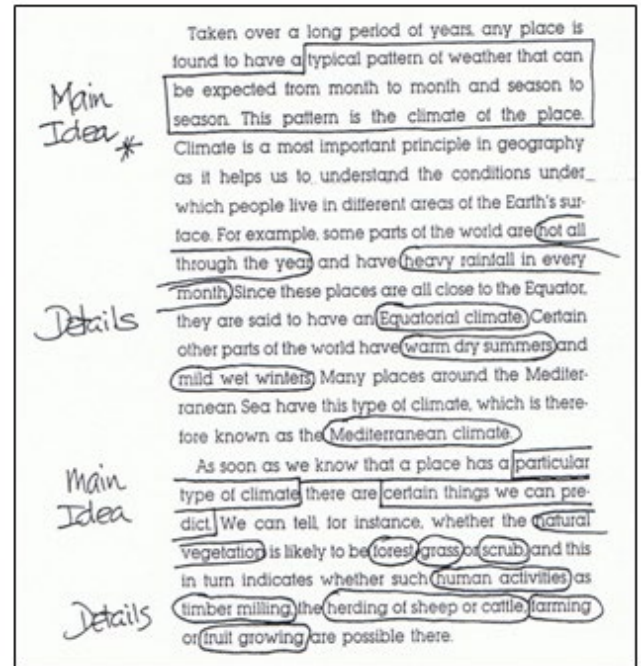 Taken over a long period of years, any place is
found to have a typical pattern of weather that can
be expected from month to month and season to
season. This pattern is the climate of the place.
Main
Idea *
Climate is a most important principle in geography
as it helps us to understand the conditions under
which people live in different areas of the Earth's sur-
face. For example, some parts of the world are hot all
through the year and have heavy rainfall in every
month. Since these places are all close to the Equator,
Details
they are said to have an Equatorial climate. Certain
other parts of the world have warm dry summers and
mild wet winters. Many places around the Mediter-
ranean Sea have this type of climate, which is there-
fore known as the Mediterranean climate.
As soon as we know that a place has a particular
Main
Idea
type of climate there are certain things we can pre-
dict. We can tell, for instance, whether the natural
vegetation is likely to be forest, grass or scrub, and this
in turn indicates whether such human activities as
Details
timber milling, the herding of sheep or cattle, farming
or fruit growing are possible there.